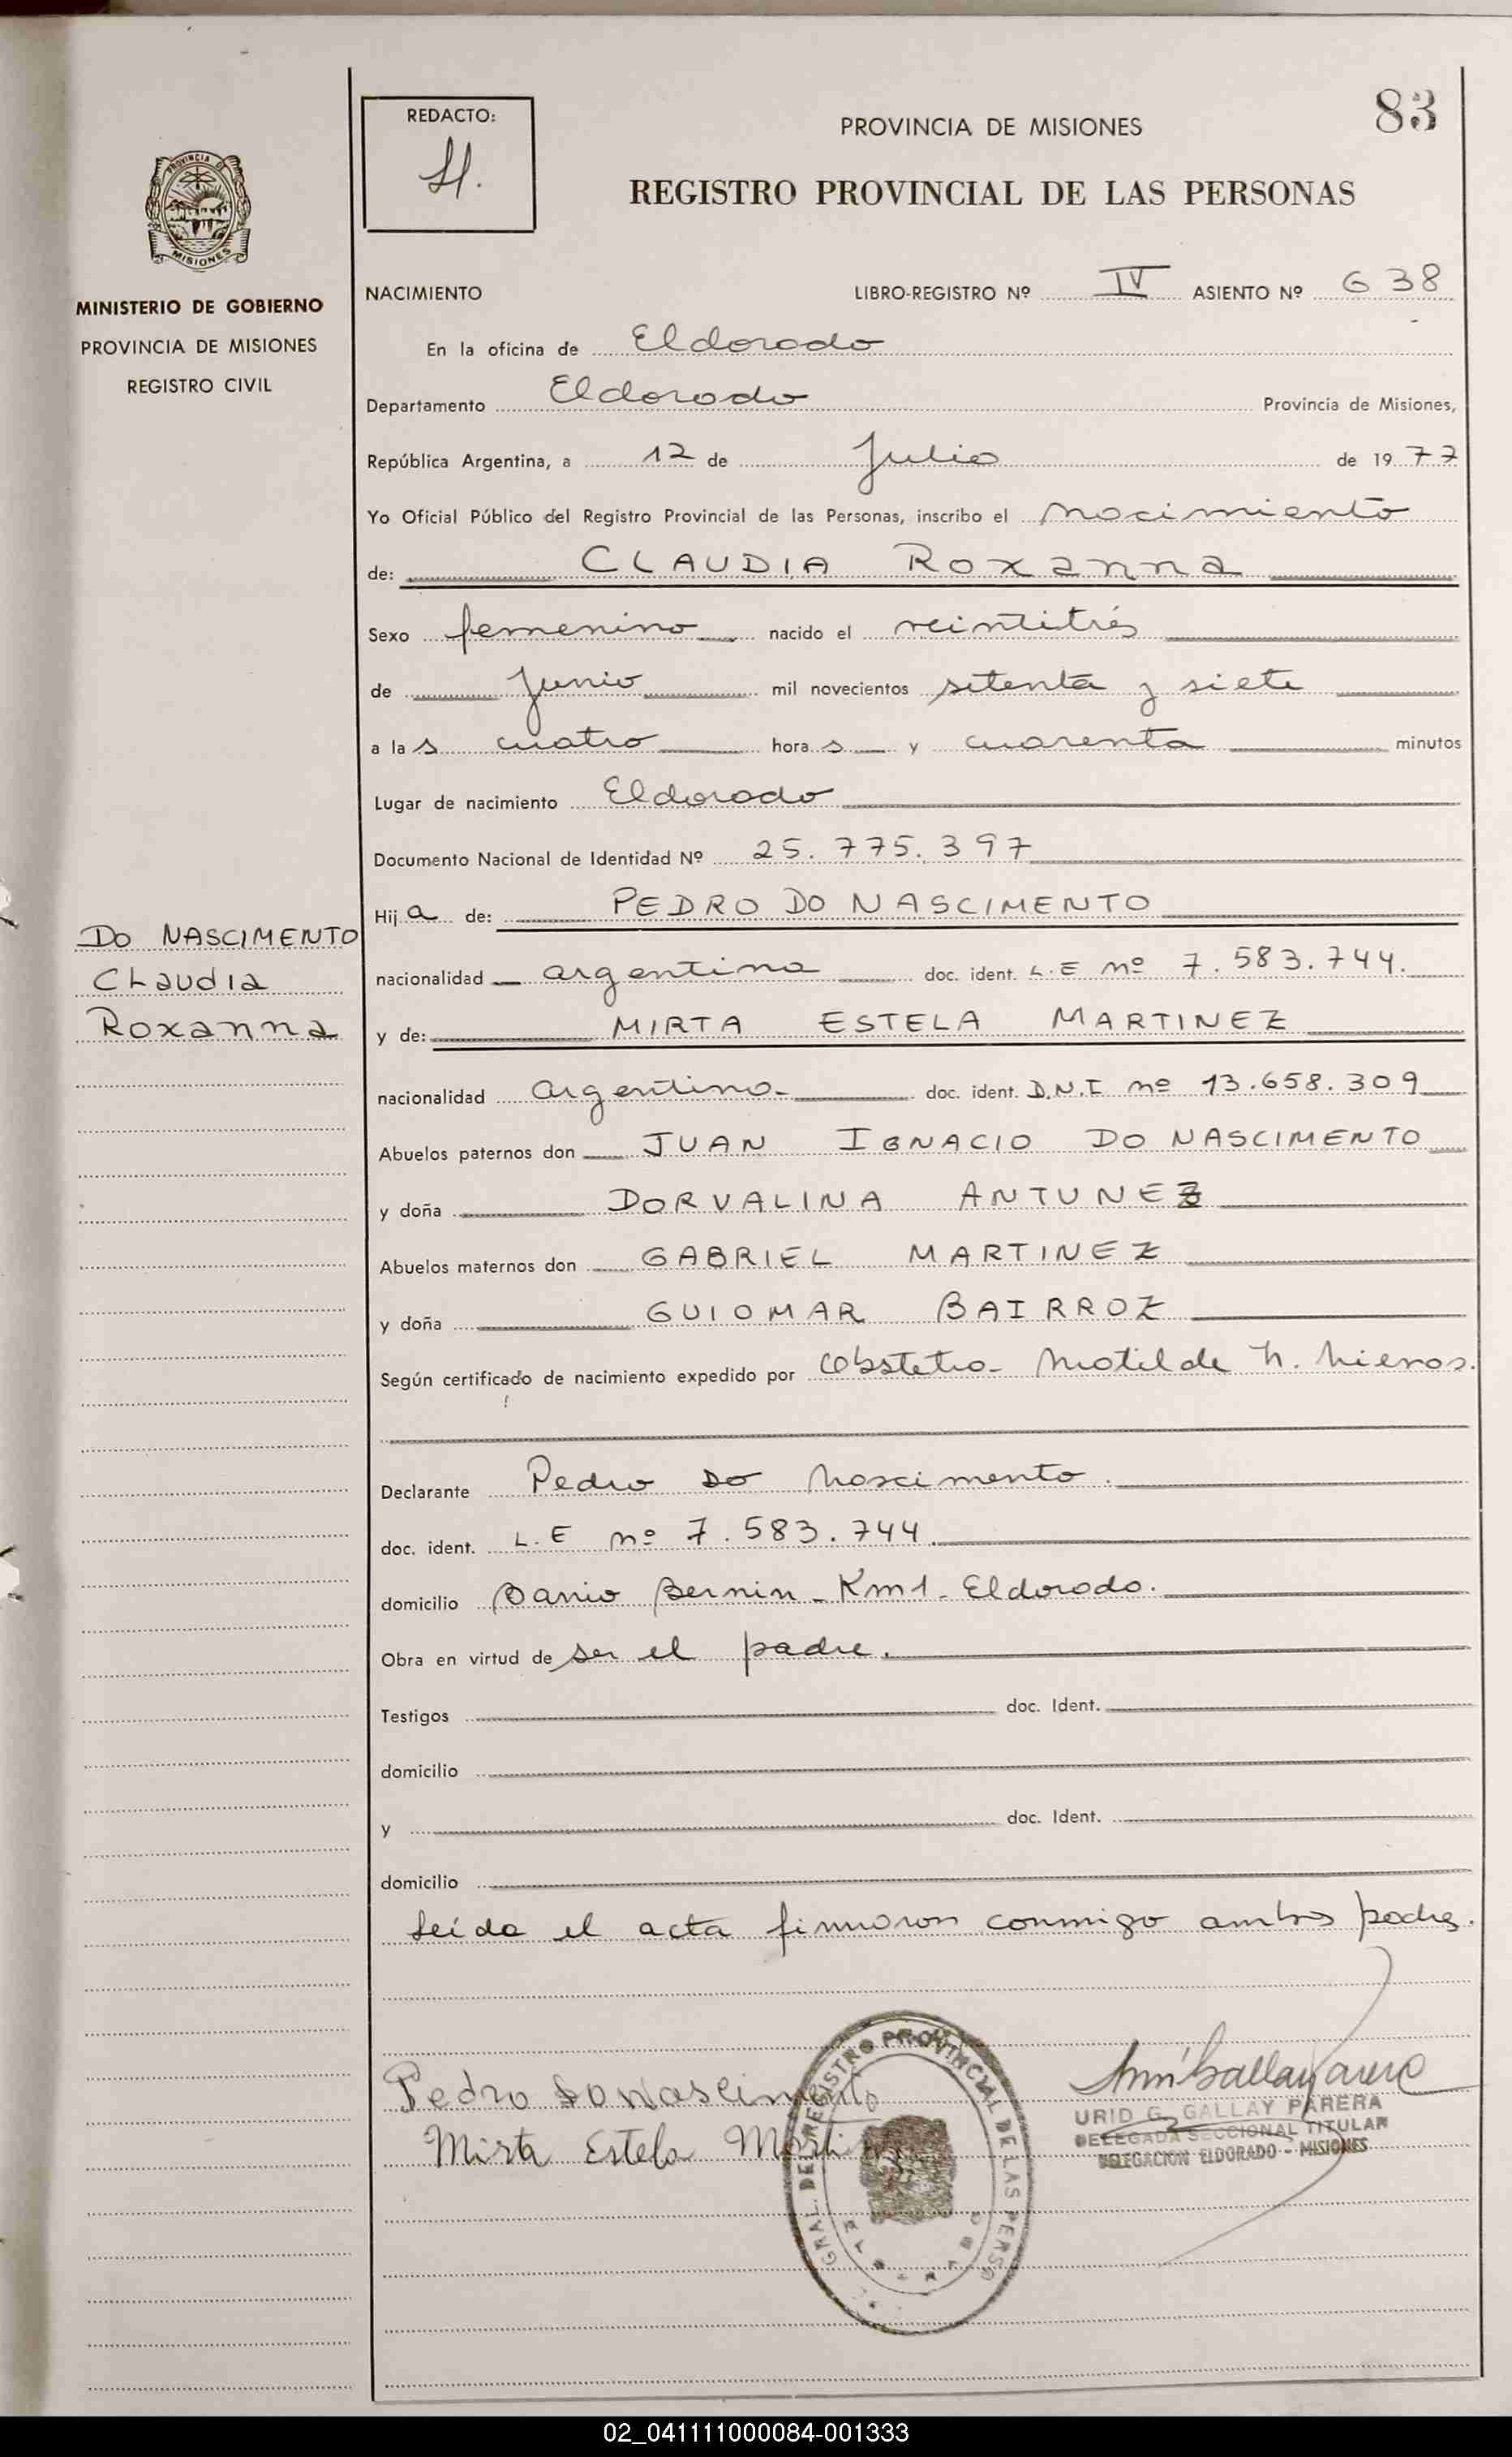 83
REDACTO:
PROVINCIA DE MISIONES
REGISTRO PROVINCIAL DE LAS PERSONAS
PROVINCIA DE
MISIONES
MINISTERIO DE GOBIERNO
PROVINCIA DE MISIONES
REGISTRO CIVIL
NACIMIENTO LIBRO-REGISTRO Nº IV ASIENTO Nº 638
En la oficina de Eldorado
Departamento Eldorado Provincia de Misiones,
República Argentina, a 12 de Julio de 1977
Yo Oficial Público del Registro Provincial de las Personas, inscribo el nacimiento
de: CLAUDIA Roxanna
Sexo femenino nacido el veintitrés
de Junio mil novecientos setenta y siete
a las cuatro horas y cuarenta minutos
Lugar de nacimiento Eldorado
Documento Nacional de Identidad Nº 25.775.397
Hija de: PEDRO DO NASCIMENTO
DO NASCIMENTO
Claudia
Roxanna
nacionalidad argentina doc. ident. L.E nº 7.583.744.
y de: MIRTA ESTELA MARTINEZ
nacionalidad argentina doc. ident. D.N.I nº 13.658.309
Abuelos paternos don JUAN IGNACIO DO NASCIMENTO
y doña DORVALINA ANTUNEZ
Abuelos maternos don GABRIEL MARTINEZ
y doña GUIOMAR BAIRROZ
Según certificado de nacimiento expedido por Obstetra Matilde
Declarante Pedro Do Nascimento.
doc. ident. L.E nº 7.583.744.
domicilio Barrio Km1 - Eldorado.
Obra en virtud de ser el padre.
Testigos doc. Ident.
domicilio
y doc. Ident.
domicilio
Leída el acta firmaron conmigo ambos padres.
Pedro Do Nascimento
Mirta Estela
GRAL. DEL REGISTRO PROVINCIAL DE LAS PERSO
URID G. GALLAY PARERA
DELEGADA SECCIONAL TITULAR
DELEGACION ELDORADO - MISIONES
02_041111000084-001333